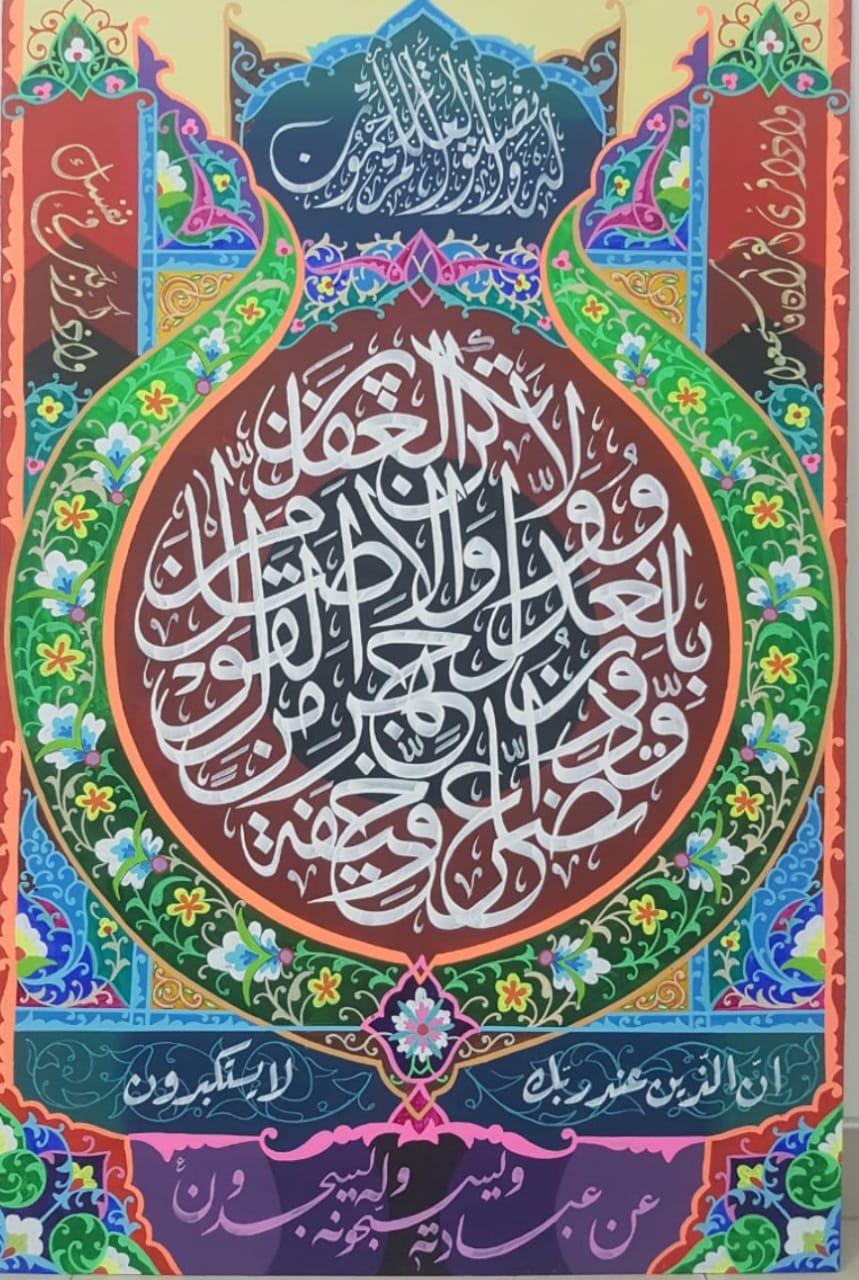 واذا قرئ القرآن فاستمعوا
له وانصتوا لعلكم ترحمون
واذكر ربك في نفسك
تضرعا وخيفة
ودون الجهر من القول
بالغدو والاصال
ولا تكن من الغفلين
انّ الذّين عند ربّك لا يستكبرون
عن عبادته ويسبّحونه وله يسجدون